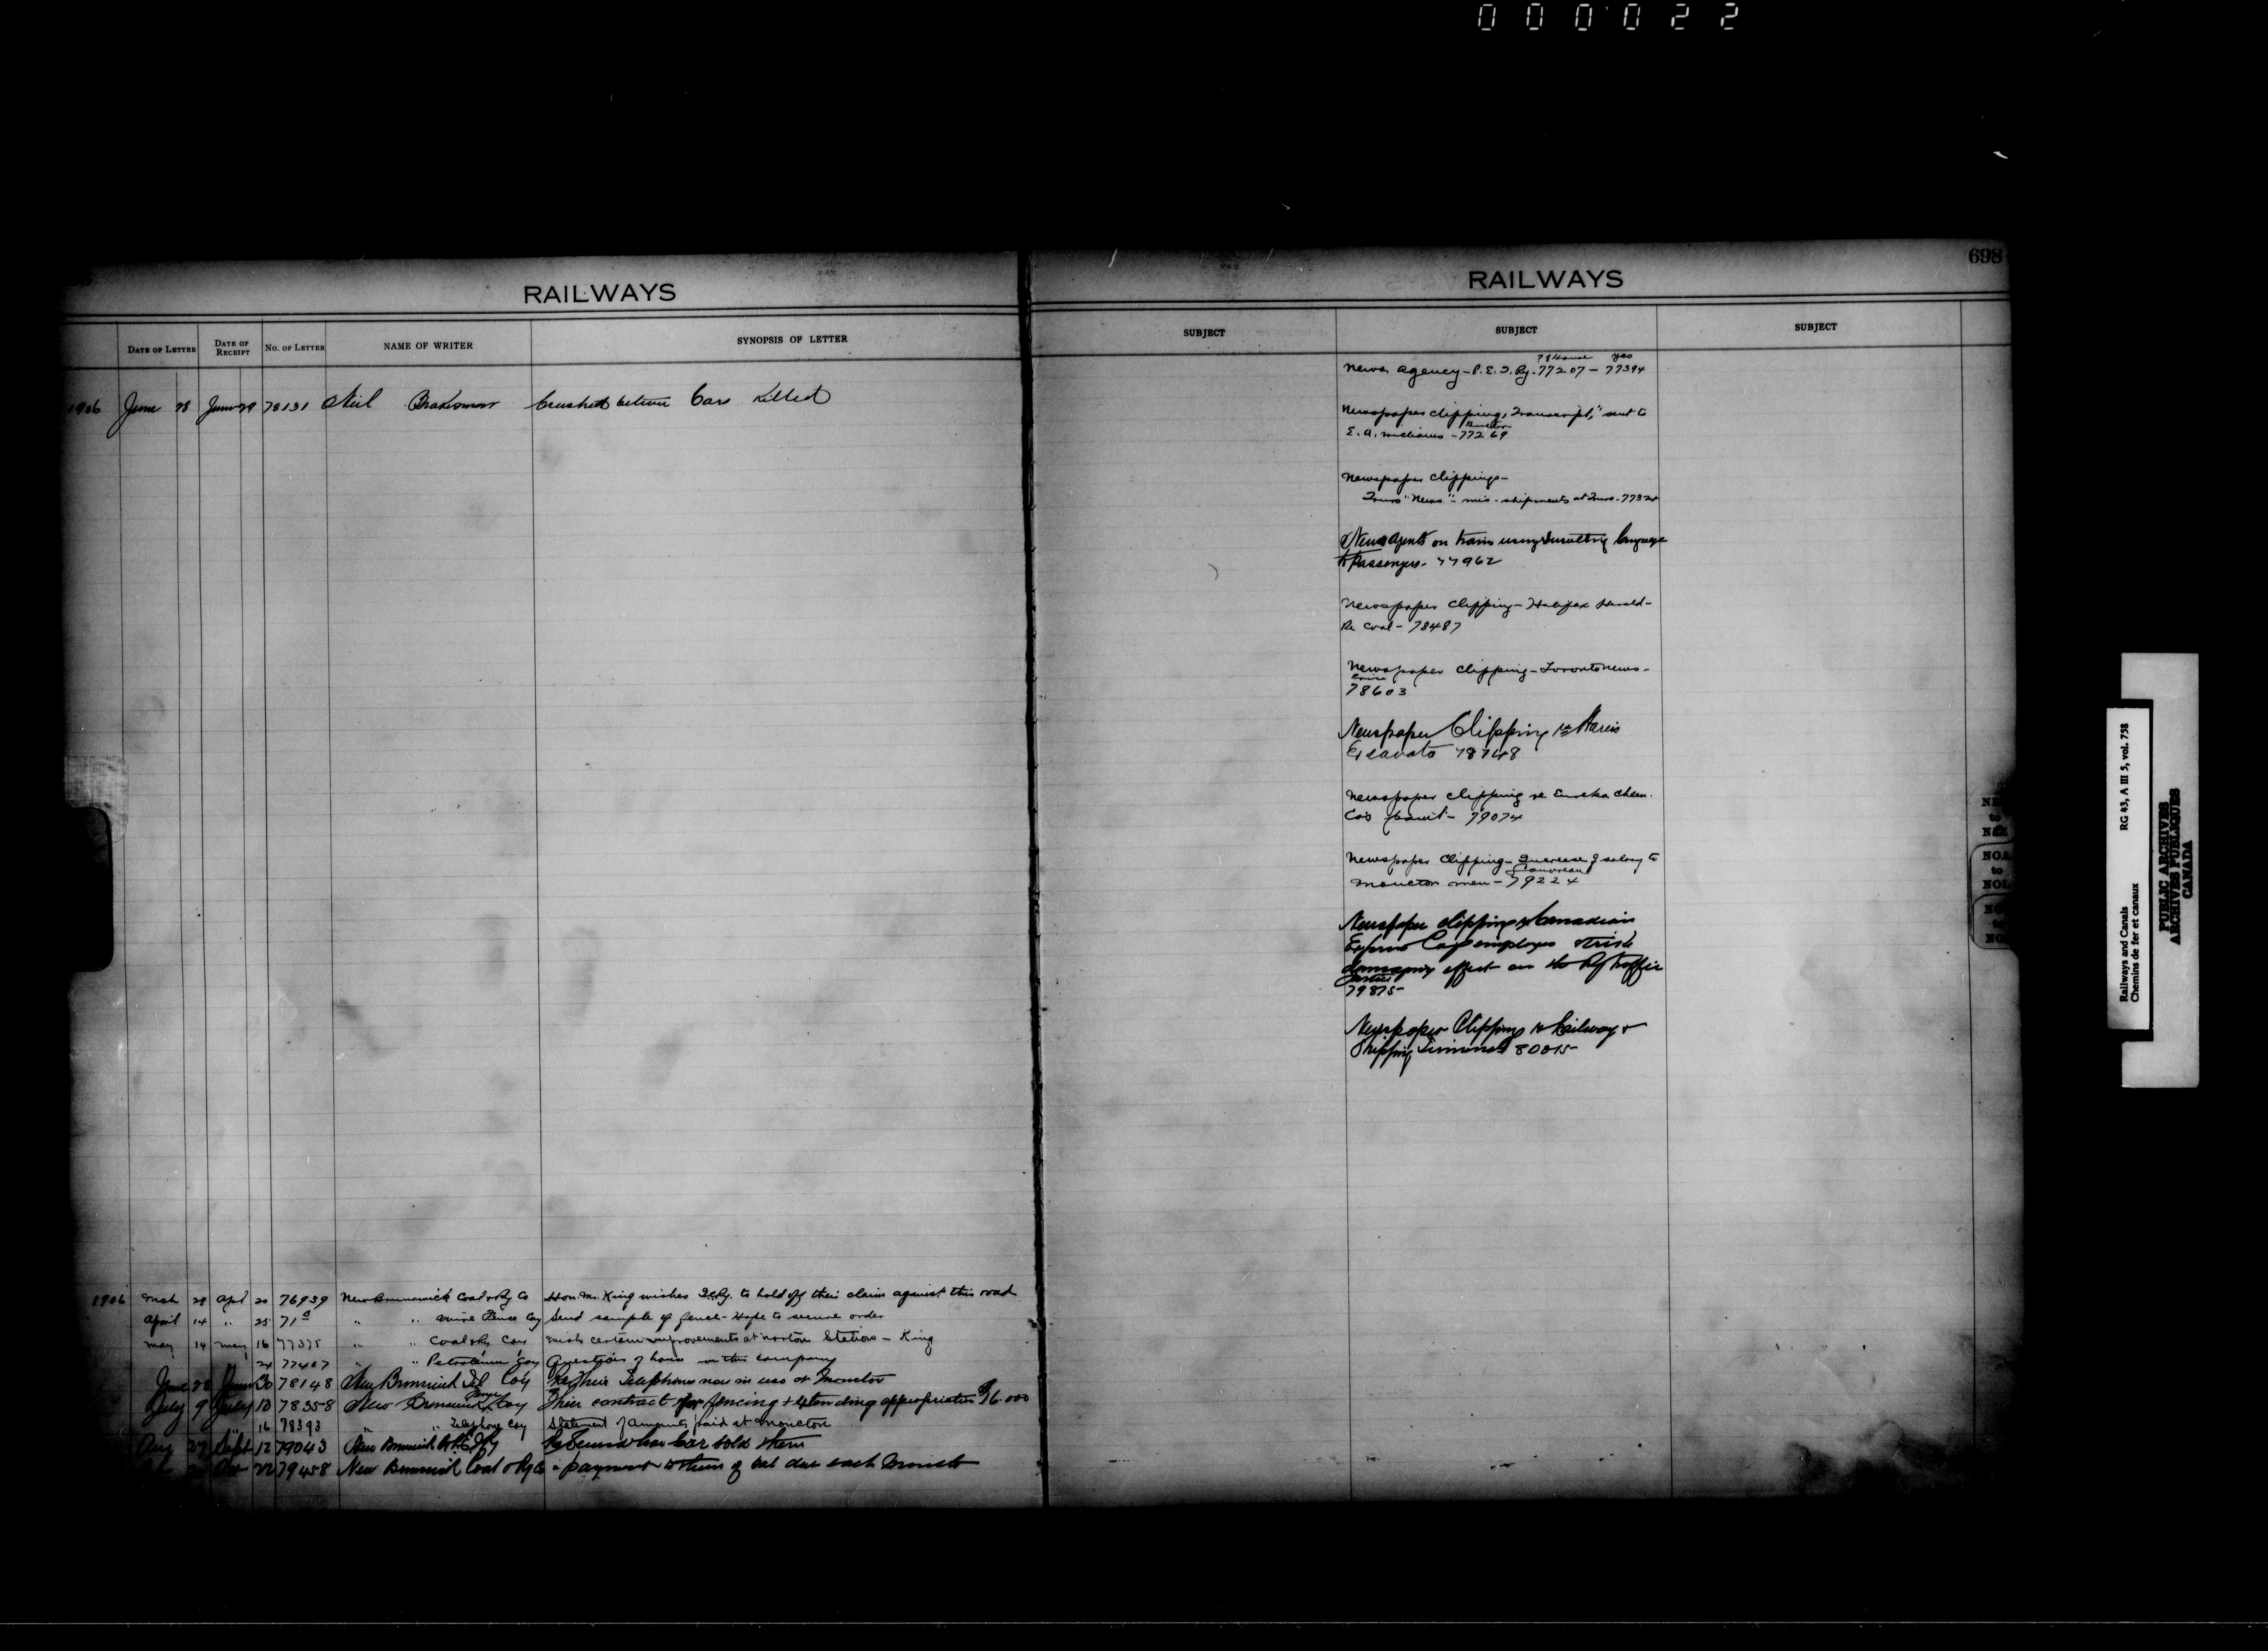 000022
698
RAILWAYS
DATE OF LETTER DATE OF RECEIPT No. OF LETTER NAME OF WRITER SYNOPSIS OF LETTER
1906 June 28 June 29 78131 Neil Brakeman Crushed between Cars Killed
1906 Mch 28 Apl 20 76939 New Brunswick Coal & Ry Co Hon. Mr. King wishes to hold off their claim against this road
April 14 " 25 71 " " Wire Fence Coy Send sample of fence - Hope to secure order
May 14 May 16 77375 " " Coal & Ry Coy certain improvements at Norton Station - King
24 77407 " " Petroleum Coy Question of in this company
June 28 June 30 78148 New Brunswick Tel Coy Re Their Telephones now in use at Moncton
July 9 July 10 78358 New Brunswick Fence Coy Their contract for fencing & extending appropriation $16.000
16 78393 " " Telephone Coy Statement of amounts paid at Moncton
Aug 27 Sept 12 79043 New Brunswick & P.E.I Ry Re Second hand Car sold them
Oct 22 79458 New Brunswick Coal & Ry Co - payment to them of bal due each month
RAILWAYS
SUBJECT SUBJECT SUBJECT
News Agency - P.E.I. Ry. 77207 - 77394
yes
Newspaper clipping, "Transcript," sent to
E. A. Williams - 77269
Newspaper clippings -
Truro "News" - mis-shipments at Truro - 77324
News Agents on train using Insulting language
to Passengers - 77962
Newspaper clipping - Halifax Herald -
Re Coal - 78487
Newspaper clipping - Toronto News -
78603
Newspaper Clipping re Harris
78748
Newspaper clipping re Eureka Chem.
Co's - 79074
Newspaper clipping - Increase of salary to
Moncton men - 79224
Newspaper clipping re Canadian
Express Coys employees strike
damaging effect on the Ry traffic
79875
Newspaper Clipping re Railway &
Shipping Terminals 80015
NOA
to
NOL
Railways and Canals RG 43, A III 5, vol. 738
Chemins de fer et canaux
PUBLIC ARCHIVES
ARCHIVES PUBLIQUES
CANADA